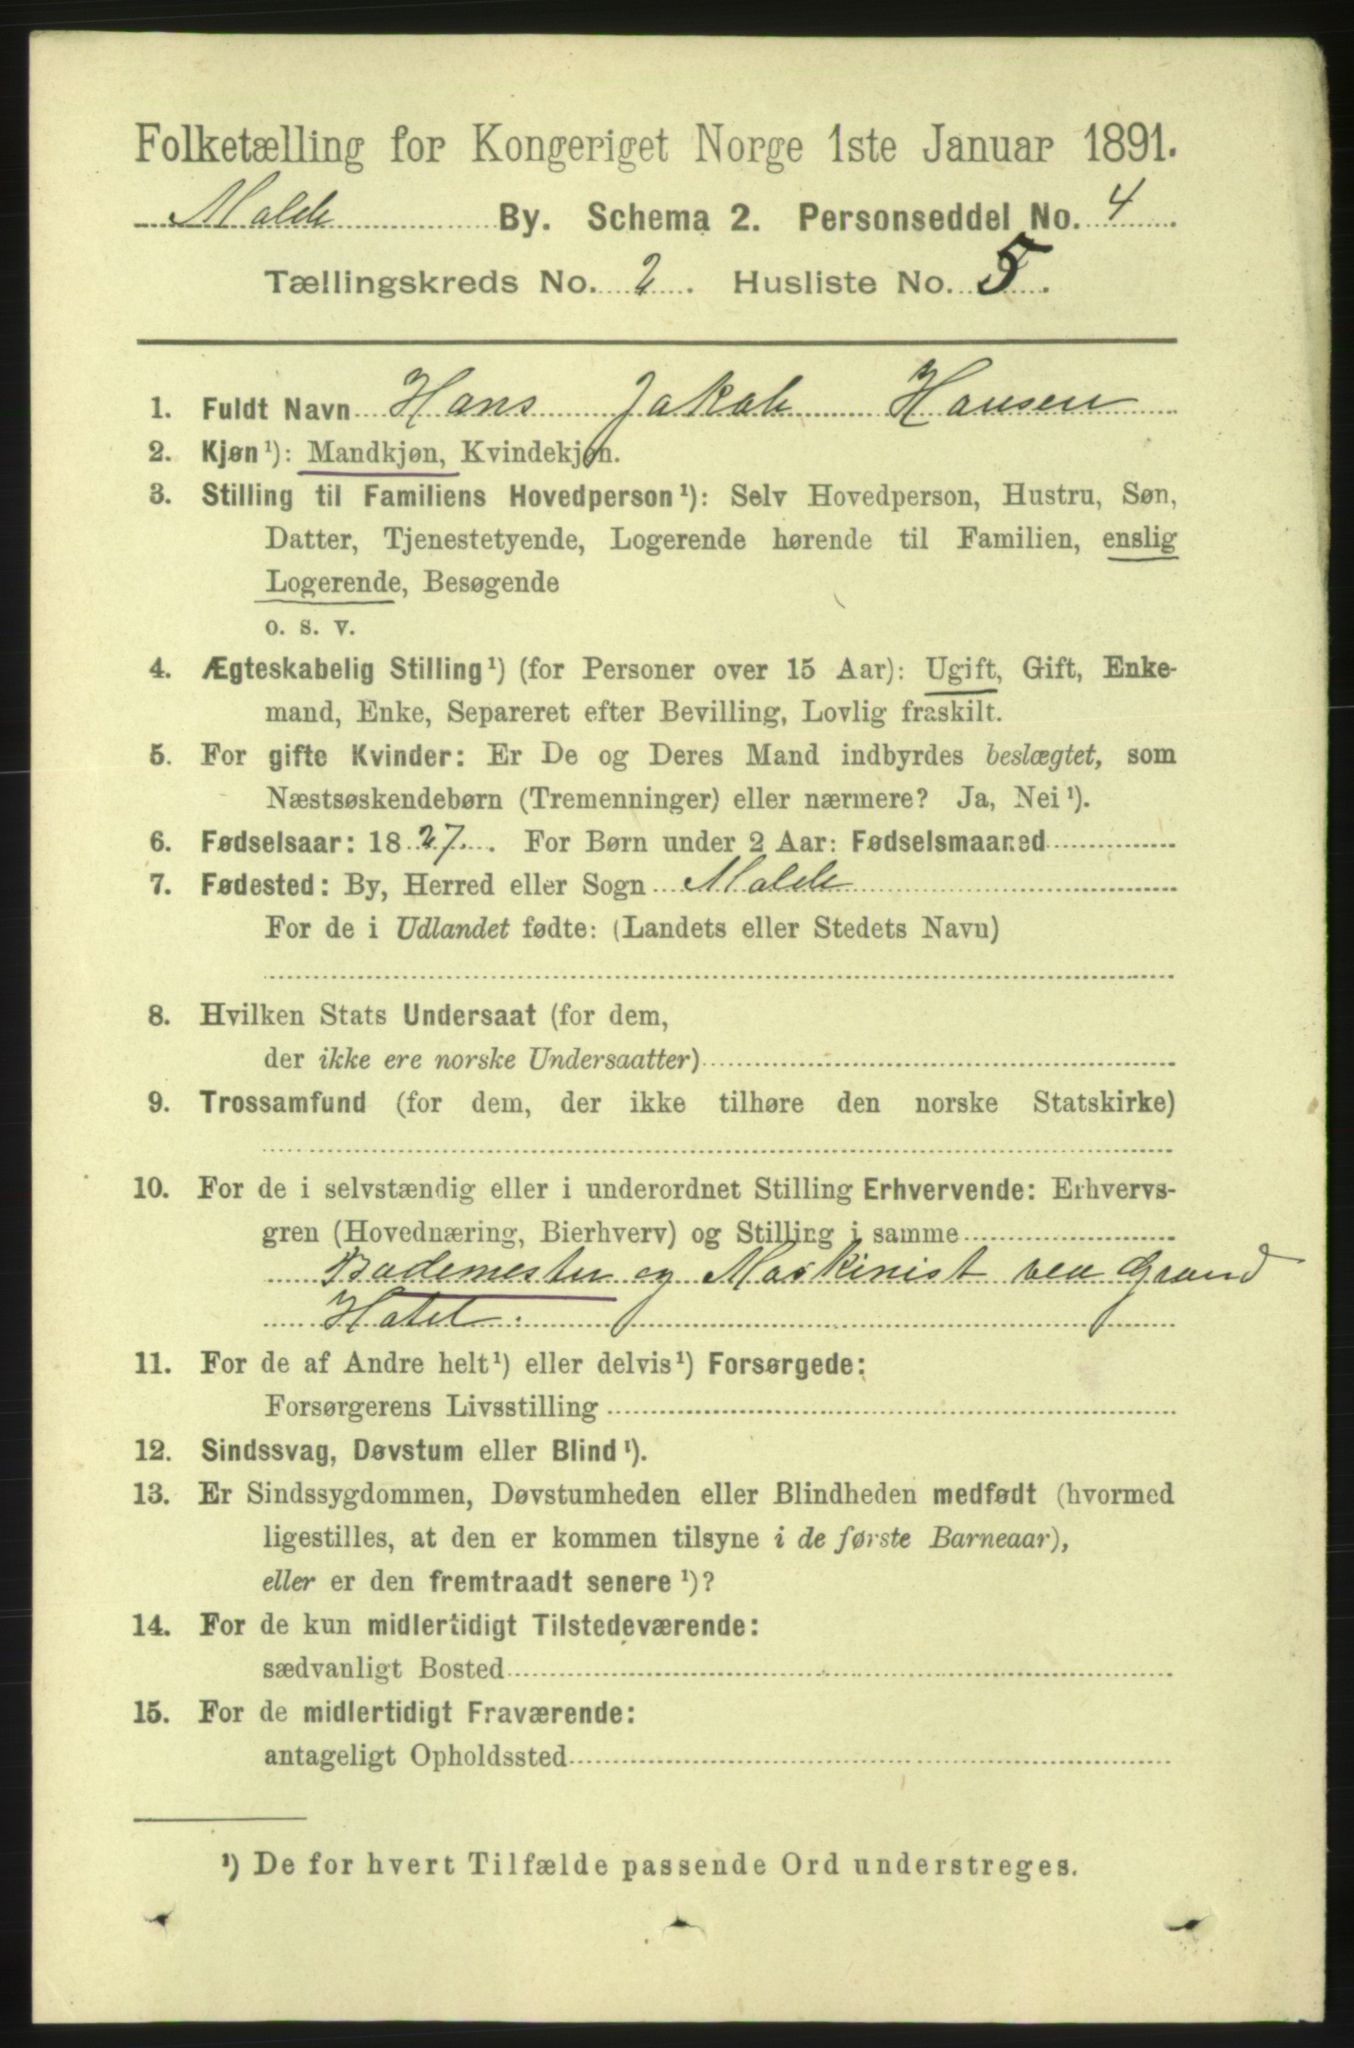 Folketælling for Kongeriget Norge 1ste Januar 1891.
Molde By. Schema 2. Personseddel No. 4
Tællingskreds No. 2. Husliste No. 5.
1. Fuldt Navn Hans Jakob Hansen
2. Kjøn¹): Mandkjøn, Kvindekjøn.
3. Stilling til Familiens Hovedperson¹): Selv Hovedperson, Hustru, Søn,
Datter, Tjenestetyende, Logerende hørende til Familien, enslig
Logerende, Besøgende
o. s. v.
4. Ægteskabelig Stilling¹) (for Personer over 15 Aar): Ugift, Gift, Enke-
mand, Enke, Separeret efter Bevilling, Lovlig fraskilt.
5. For gifte Kvinder: Er De og Deres Mand indbyrdes beslægtet, som
Næstsøskendebørn (Tremenninger) eller nærmere? Ja, Nei¹).
6. Fødselsaar: 1827. For Børn under 2 Aar: Fødselsmaaned
7. Fødested: By, Herred eller Sogn Molde
For de i Udlandet fødte: (Landets eller Stedets Navn)
8. Hvilken Stats Undersaat (for dem,
der ikke ere norske Undersaatter)
9. Trossamfund (for dem, der ikke tilhøre den norske Statskirke)
10. For de i selvstændig eller i underordnet Stilling Erhvervende: Erhvervs-
gren (Hovednæring, Bierhverv) og Stilling i samme
Bademester og Maskinist ved Grand
Hotel.
11. For de af Andre helt¹) eller delvis¹) Forsørgede:
Forsørgerens Livsstilling
12. Sindssvag, Døvstum eller Blind¹).
13. Er Sindssygdommen, Døvstumheden eller Blindheden medfødt (hvormed
ligestilles, at den er kommen tilsyne i de første Barneaar),
eller er den fremtraadt senere¹)?
14. For de kun midlertidigt Tilstedeværende:
sædvanligt Bosted
15. For de midlertidigt Fraværende:
antageligt Opholdssted
¹) De for hvert Tilfælde passende Ord understreges.